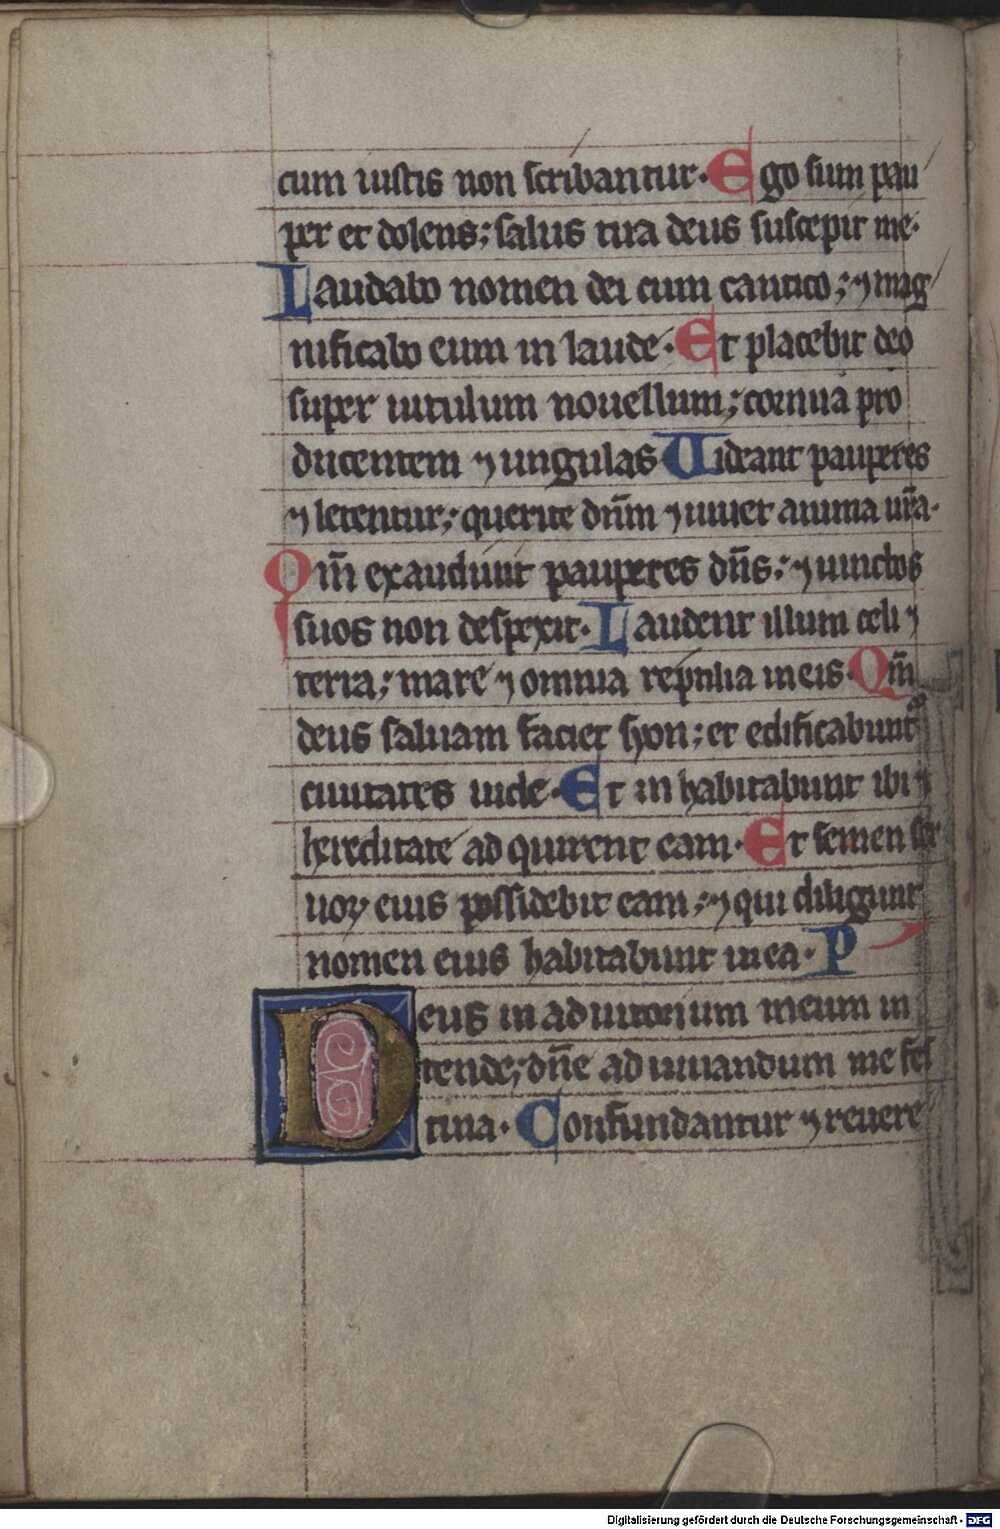 cum iustis non scribantur. Ego sum pau
per et dolens; salus tua deus suscepit me.
Laudabo nomen dei cum cantico; ⁊ mag
nificabo eum in laude. Et placebit deo
super uitulum nouellum; cornua pro
ducentem ⁊ ungulas Uideant pauperes
⁊ letentur; querite dn̄m ⁊ uiuet anima ur̄a.
Qm̄ exaudiuit pauperes dn̄s; ⁊ uinctos
suos non despexit. Laudent illum celi ⁊
terra; mare ⁊ omnia reptilia in eis. Qm̄
deus saluam faciet syon; et edificabunt᷑
ciuitates iude. Et in habitabunt ibi ⁊
hereditate ad quirent eam. Et semen ser
uoꝝ eius possidebit eam; ⁊ qui diligunt
nomen eius habitabunt in ea. P
Deus in ad iutorium meum in
tende; dn̄e ad iuuandum me fes
tina. Confundantur ⁊ reuere
Digitalisierung gefördert durch die Deutsche Forschungsgemeinschaft - DFG